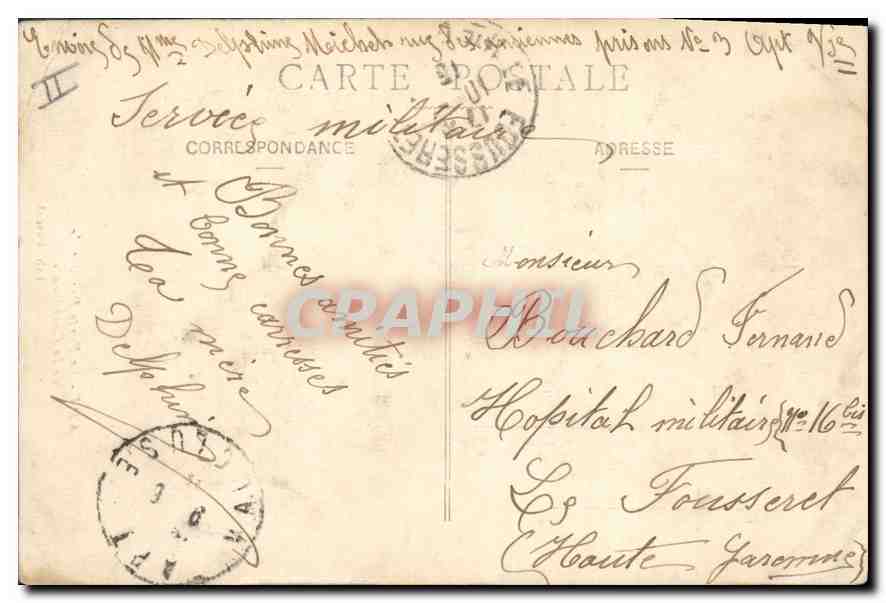 Envoi de Mme Delphine Michel rue des anciennes prisons No 3 Apt Vse
II
CARTE POSTALE
Service militaire
CORRESPONDANCE
ADRESSE
LE FOUSSERET
Bonnes amitiés
et bonne carresses
ta mère
Delphine
Monsieur
Bouchard Fernand
Hopital militaire (No 16 bis
Le Fousseret
(Haute Garonne)
CPARHIL
APT VAUCLUSE